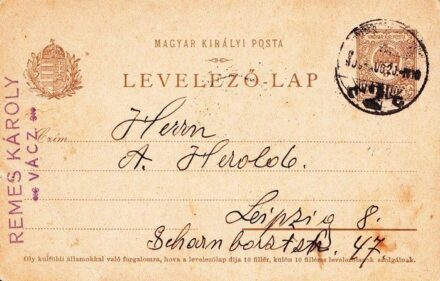 MAGYAR KIRÁLYI POSTA
LEVELEZŐ-LAP
REMES KÁROLY
VÁCZ
Czím:
Herrn
A. Herold.
Leipzig 8.
Scharnhorststr. 47
Oly külföldi államokkal való forgalomra, hova a levelezőlap díja 10 fillér, külön 10 filléres levelezőlapok szolgálnak.